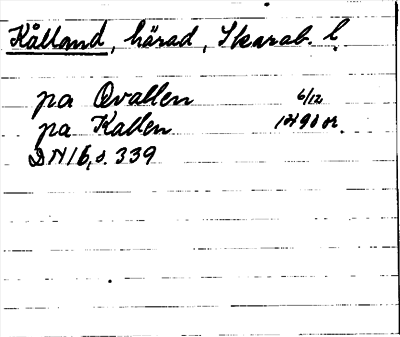 Kålland, härad, Skarab. l.
pa Qvallen 6/12
pa Kallen 1490 or.
DN 16, s. 339